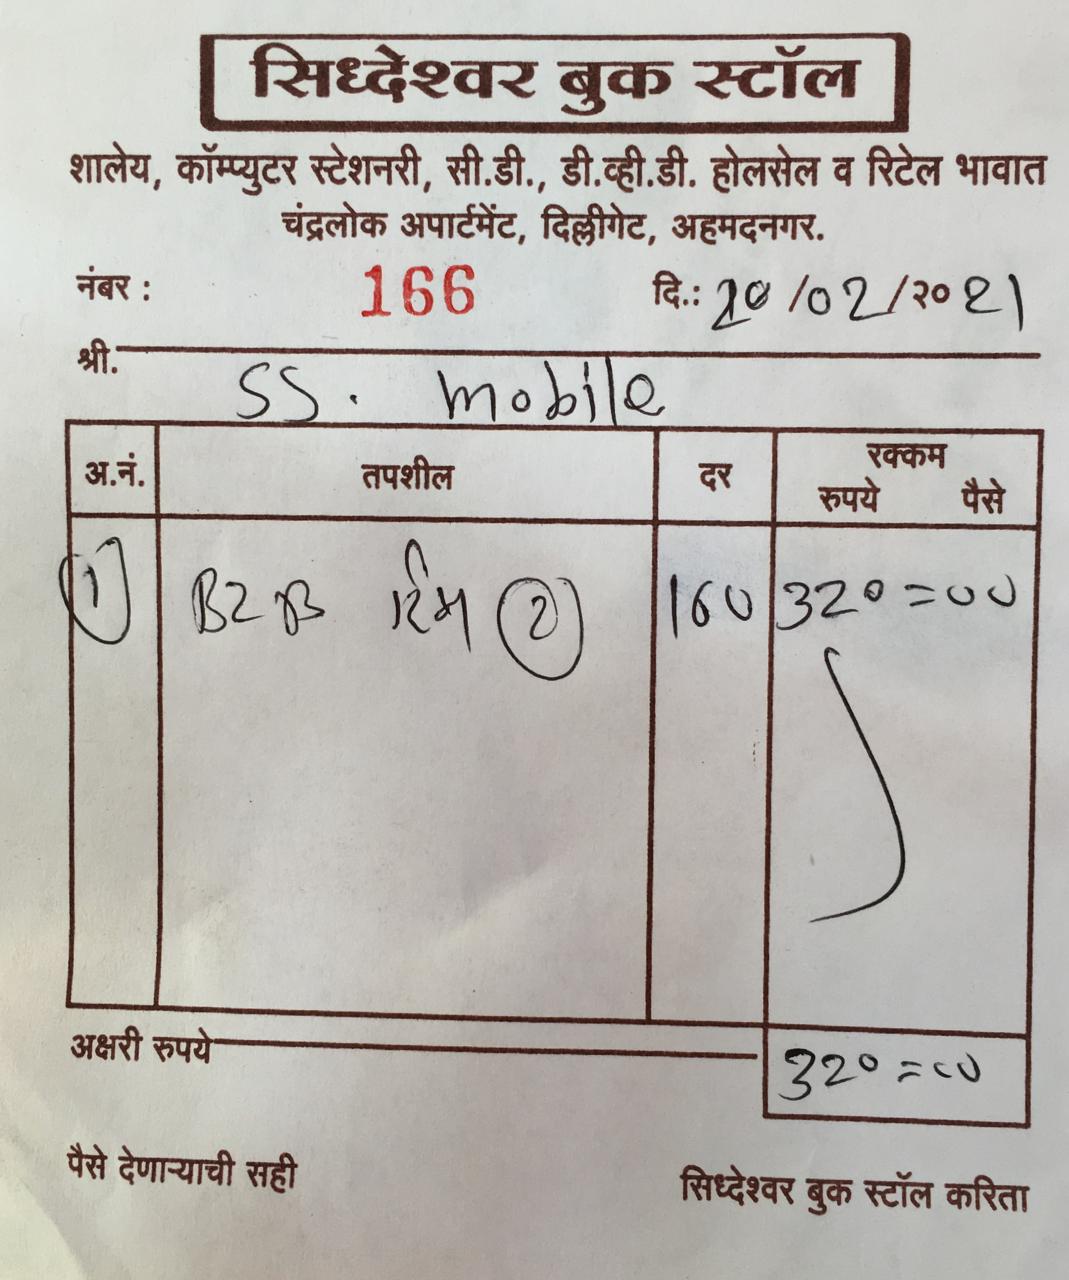 सिध्देश्वर बुक स्टॉल
शालेय, कॉम्प्युटर स्टेशनरी, सी.डी., डी.व्ही.डी. होलसेल व रिटेल भावात
चंद्रलोक अपार्टमेंट, दिल्लीगेट, अहमदनगर.
नंबर : 166 दि.: 20/02/२०21
श्री. SS. mobile
अ.नं. तपशील दर रक्कम
रुपये पैसे
1 B2B रिम 2 160 320=00
अक्षरी रुपये 320=00
पैसे देणाऱ्याची सही सिध्देश्वर बुक स्टॉल करिता